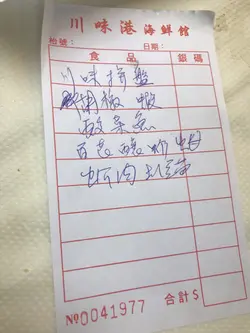 川味港海鮮館
枱號： 日期：
食品 銀碼
川味拼盤
椒 蝦
酸菜魚
百花釀
蚧肉扒
№0041977 合計$